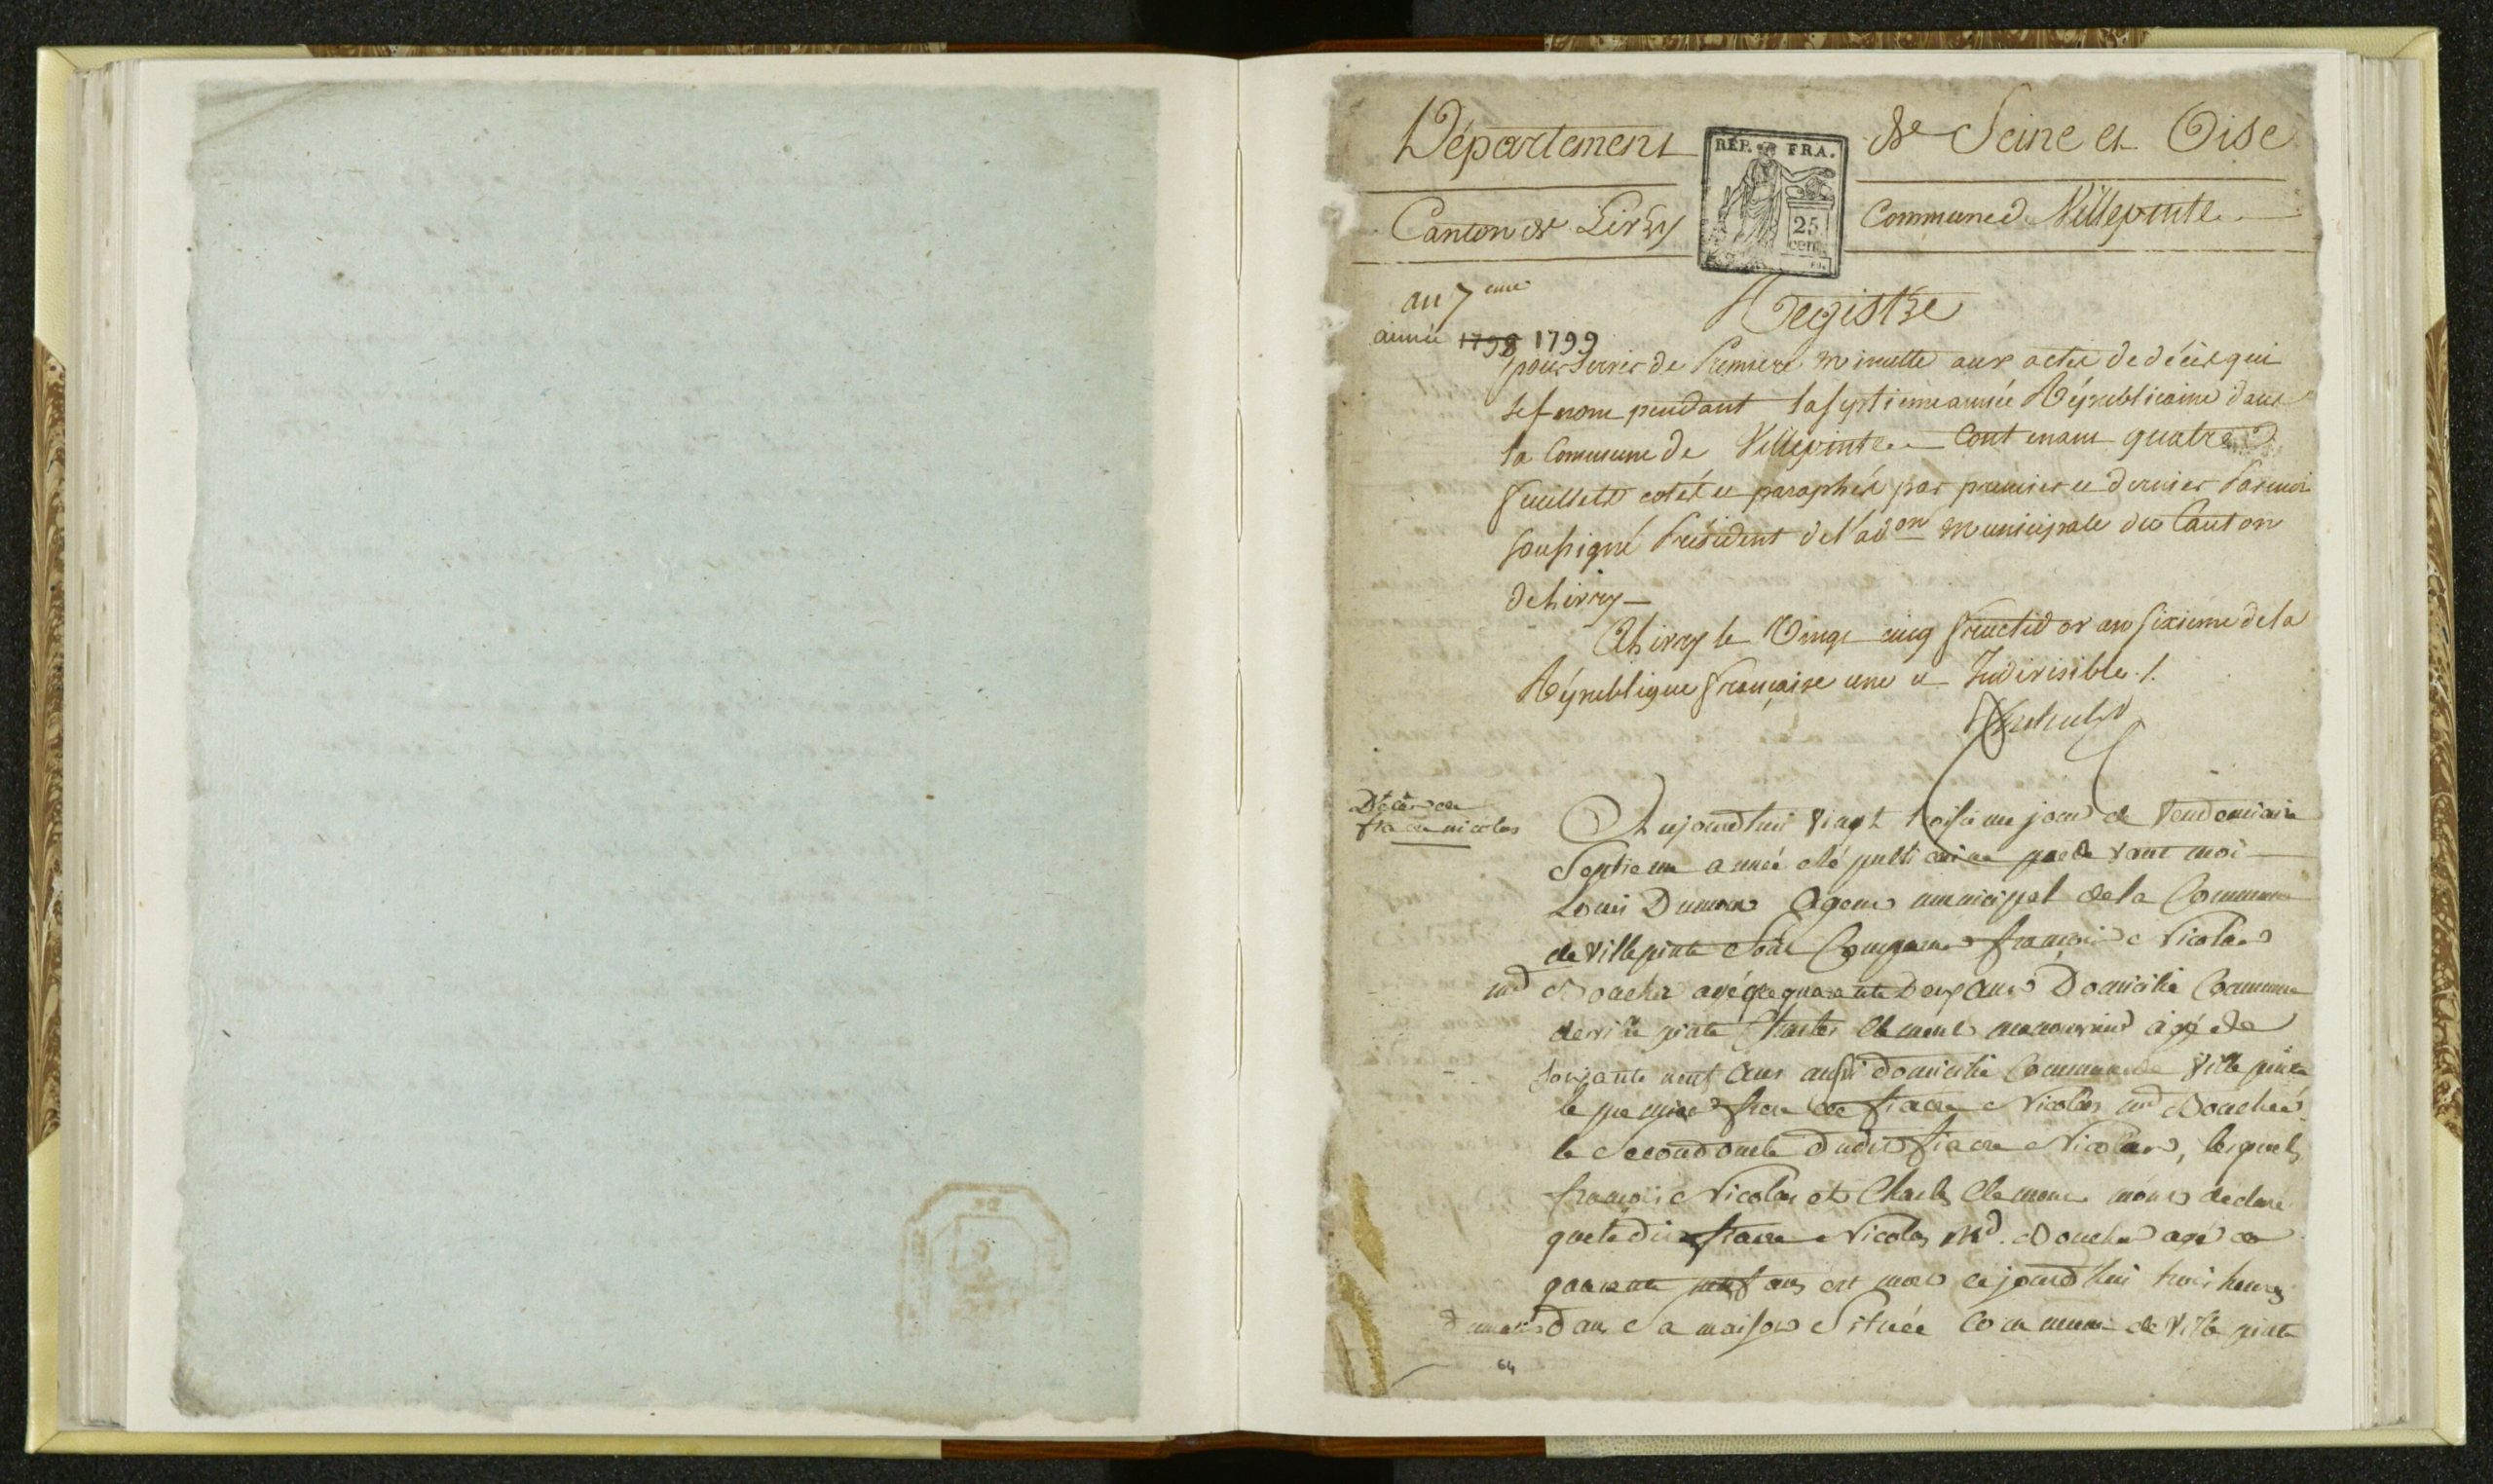 Département de Seine et Oise
RÉP. FRA.
25
cen.
Canton de Livry Commune de Villepinte
an 7eme
Registre
année 1798 1799
pour servir de Premiere minutte aux actes de décès qui
se feront pendant la septieme année Républicaine dans
la Commune de Villepinte contenant quatre
feuillets cotés et paraphés par premier et dernier Par moi
soussigné Président de l'adon municipale du Canton
de Livry
A Livry le Vingt cinq fructidor an sixieme de la
République française une et Indivisible ./.
Décès de
fiacre nicolas
Aujourdhui vingt troisieme jour de Vendemiaire
Septieme année Républicaine par devant moi
Louis Agent municipal de la Commune
de villepinte sont Comparus françois Nicolas
md Boucher agé de quarante Deux ans Domicilié Commune
de ville pinte Charles Clement manouvrier agé de
soixante neuf ans aussi domicilié Commune de Ville pinte
le premier frere de fiacre Nicolas md Boucher
le Second oncle dudit fiacre Nicolas, lesquels
françois Nicolas et Charles Clement m'ont declaré
que ledit fiacre Nicolas Md. Boucher agé de
quarante neuf ans est mort cejourd'hui trois heures
dans Sa maison Située Commune de Ville pinte
64